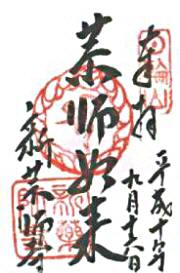 奉拝
平成十年
九月十六日
薬師如来
新薬師寺